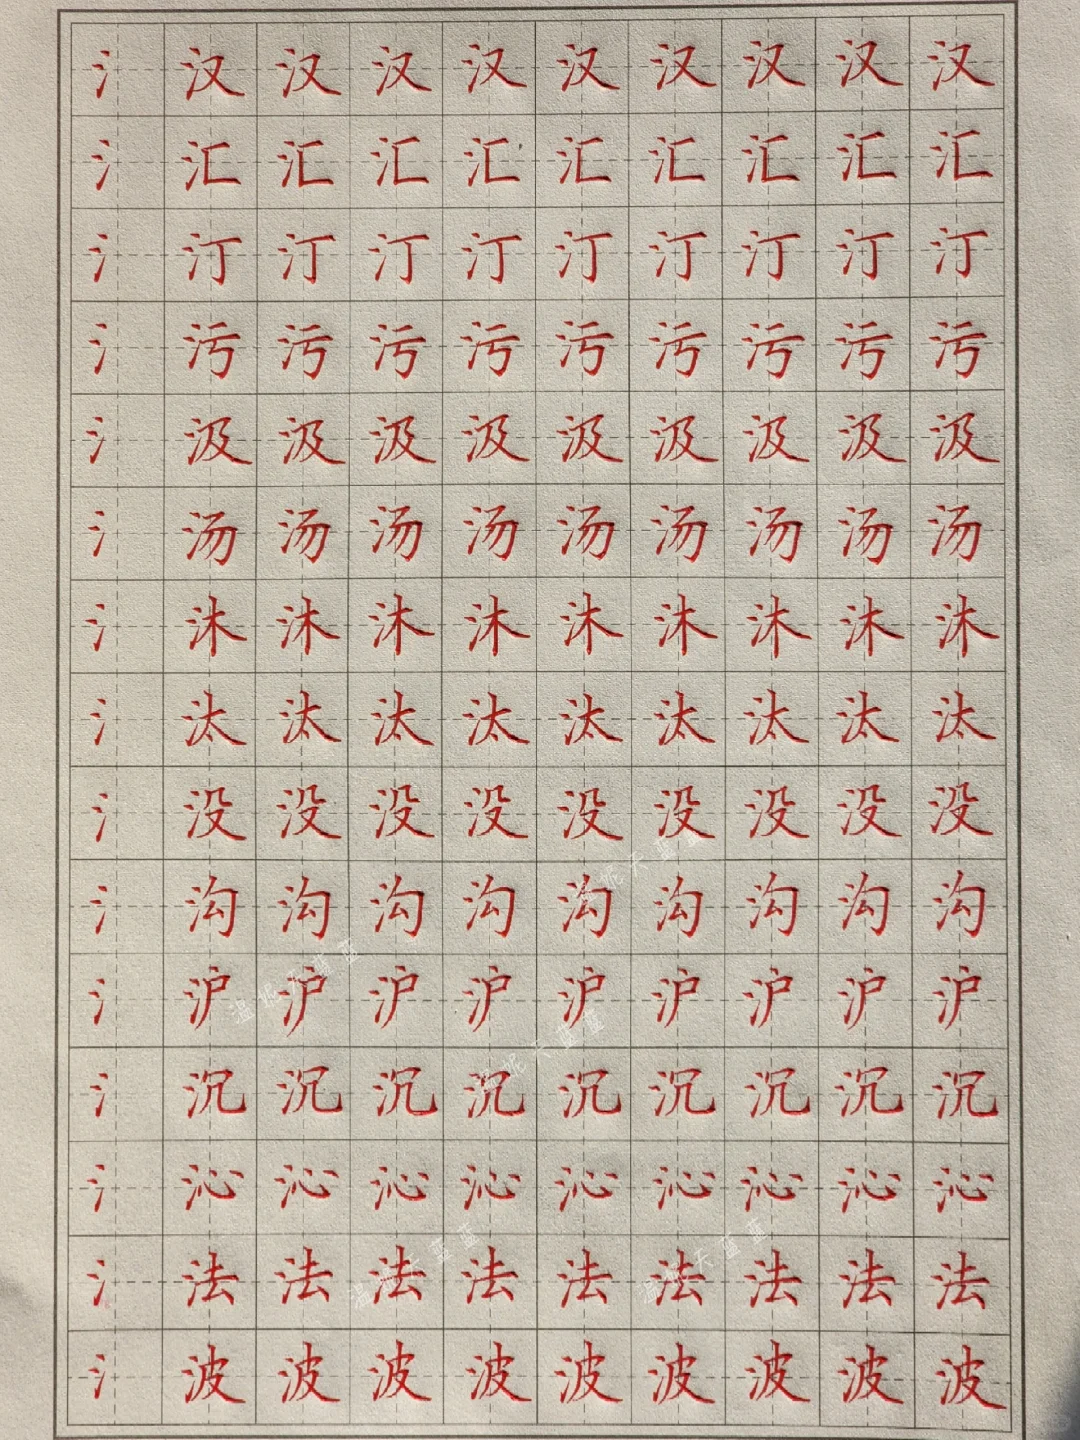 氵汉汉汉汉汉汉汉汉汉
氵汇汇汇汇汇汇汇汇汇
氵汀汀汀汀汀汀汀汀汀
氵污污污污污污污污污
氵汲汲汲汲汲汲汲汲汲
氵汤汤汤汤汤汤汤汤汤
氵沐沐沐沐沐沐沐沐沐
氵汰汰汰汰汰汰汰汰汰
氵没没没没没没没没没
氵沟沟沟沟沟沟沟沟沟
氵沪沪沪沪沪沪沪沪沪
氵沉沉沉沉沉沉沉沉沉
氵沁沁沁沁沁沁沁沁沁
氵法法法法法法法法法
氵波波波波波波波波波